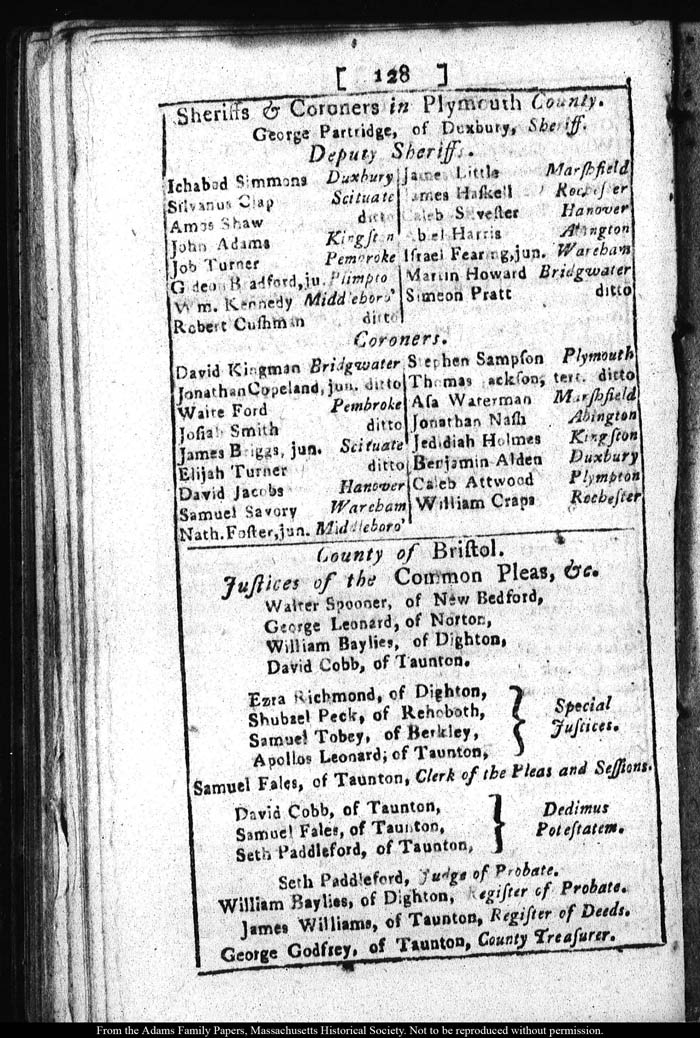 [ 128 ]
Sheriffs & Coroners in Plymouth County.
George Partridge, of Duxbury, Sheriff.
Deputy Sheriffs.
Ichabod Simmons Duxbury
Silvanus Clap Scituate
Amos Shaw ditto
John Adams Kingston
Job Turner Pembroke
Gideon Bradford, ju. Plimpto
Wm. Kennedy Middleboro'
Robert Cuſhman ditto
James Little Marſhfield
James Haſkell Rocheſter
Caleb Silveſter Hanover
Abiel Harris Abington
Iſrael Fearing, jun. Wareham
Martin Howard Bridgwater
Simeon Pratt ditto
Coroners.
David Kingman Bridgwater
Jonathan Copeland, jun. ditto
Waite Ford Pembroke
Joſiah Smith ditto
James Briggs, jun. Scituate
Elijah Turner ditto
David Jacobs Hanover
Samuel Savory Wareham
Nath. Foſter, jun. Middleboro'
Stephen Sampſon Plymouth
Thomas Jackſon, tert. ditto
Aſa Waterman Marſhfield
Jonathan Naſh Abington
Jedidiah Holmes Kingſton
Benjamin Alden Duxbury
Caleb Attwood Plympton
William Craps Rocheſter
County of Briſtol.
Juſtices of the Common Pleas, &c.
Walter Spooner, of New Bedford,
George Leonard, of Norton,
William Baylies, of Dighton,
David Cobb, of Taunton.
Ezra Richmond, of Dighton,
Shubael Peck, of Rehoboth,
Samuel Tobey, of Berkley,
Apollos Leonard; of Taunton,
Special
Juſtices.
Samuel Fales, of Taunton, Clerk of the Pleas and Seſſions.
David Cobb, of Taunton,
Samuel Fales, of Taunton,
Seth Paddleford, of Taunton,
Dedimus
Poteſtatem.
Seth Paddleford, Judge of Probate.
William Baylies, of Dighton, Regiſter of Probate.
James Williams, of Taunton, Regiſter of Deeds.
George Godfrey, of Taunton, County Treaſurer.
From the Adams Family Papers, Massachusetts Historical Society. Not to be reproduced without permission.